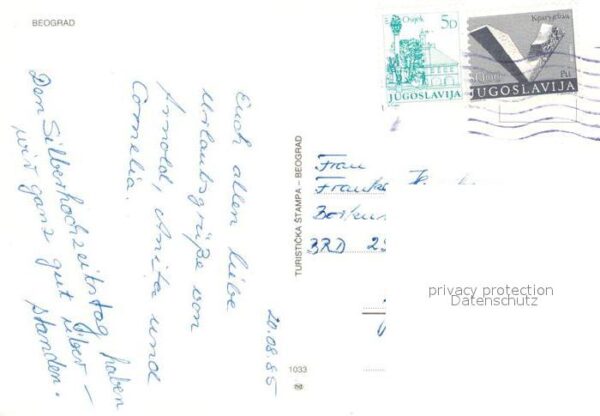 BEOGRAD
Osijek
5D
JUGOSLAVIJA
Kragujevac
Pil
JUGOSLAVIJA
Euch allen liebe
Urlaubsgrüße von
Arnold, Anita und
Cornelia.
Den Silberhochzeitstag haben
wir ganz gut über-
standen.
20.08.85
TURISTIČKA ŠTAMPA - BEOGRAD
1033
Frau
BRD
privacy protection
Datenschutz